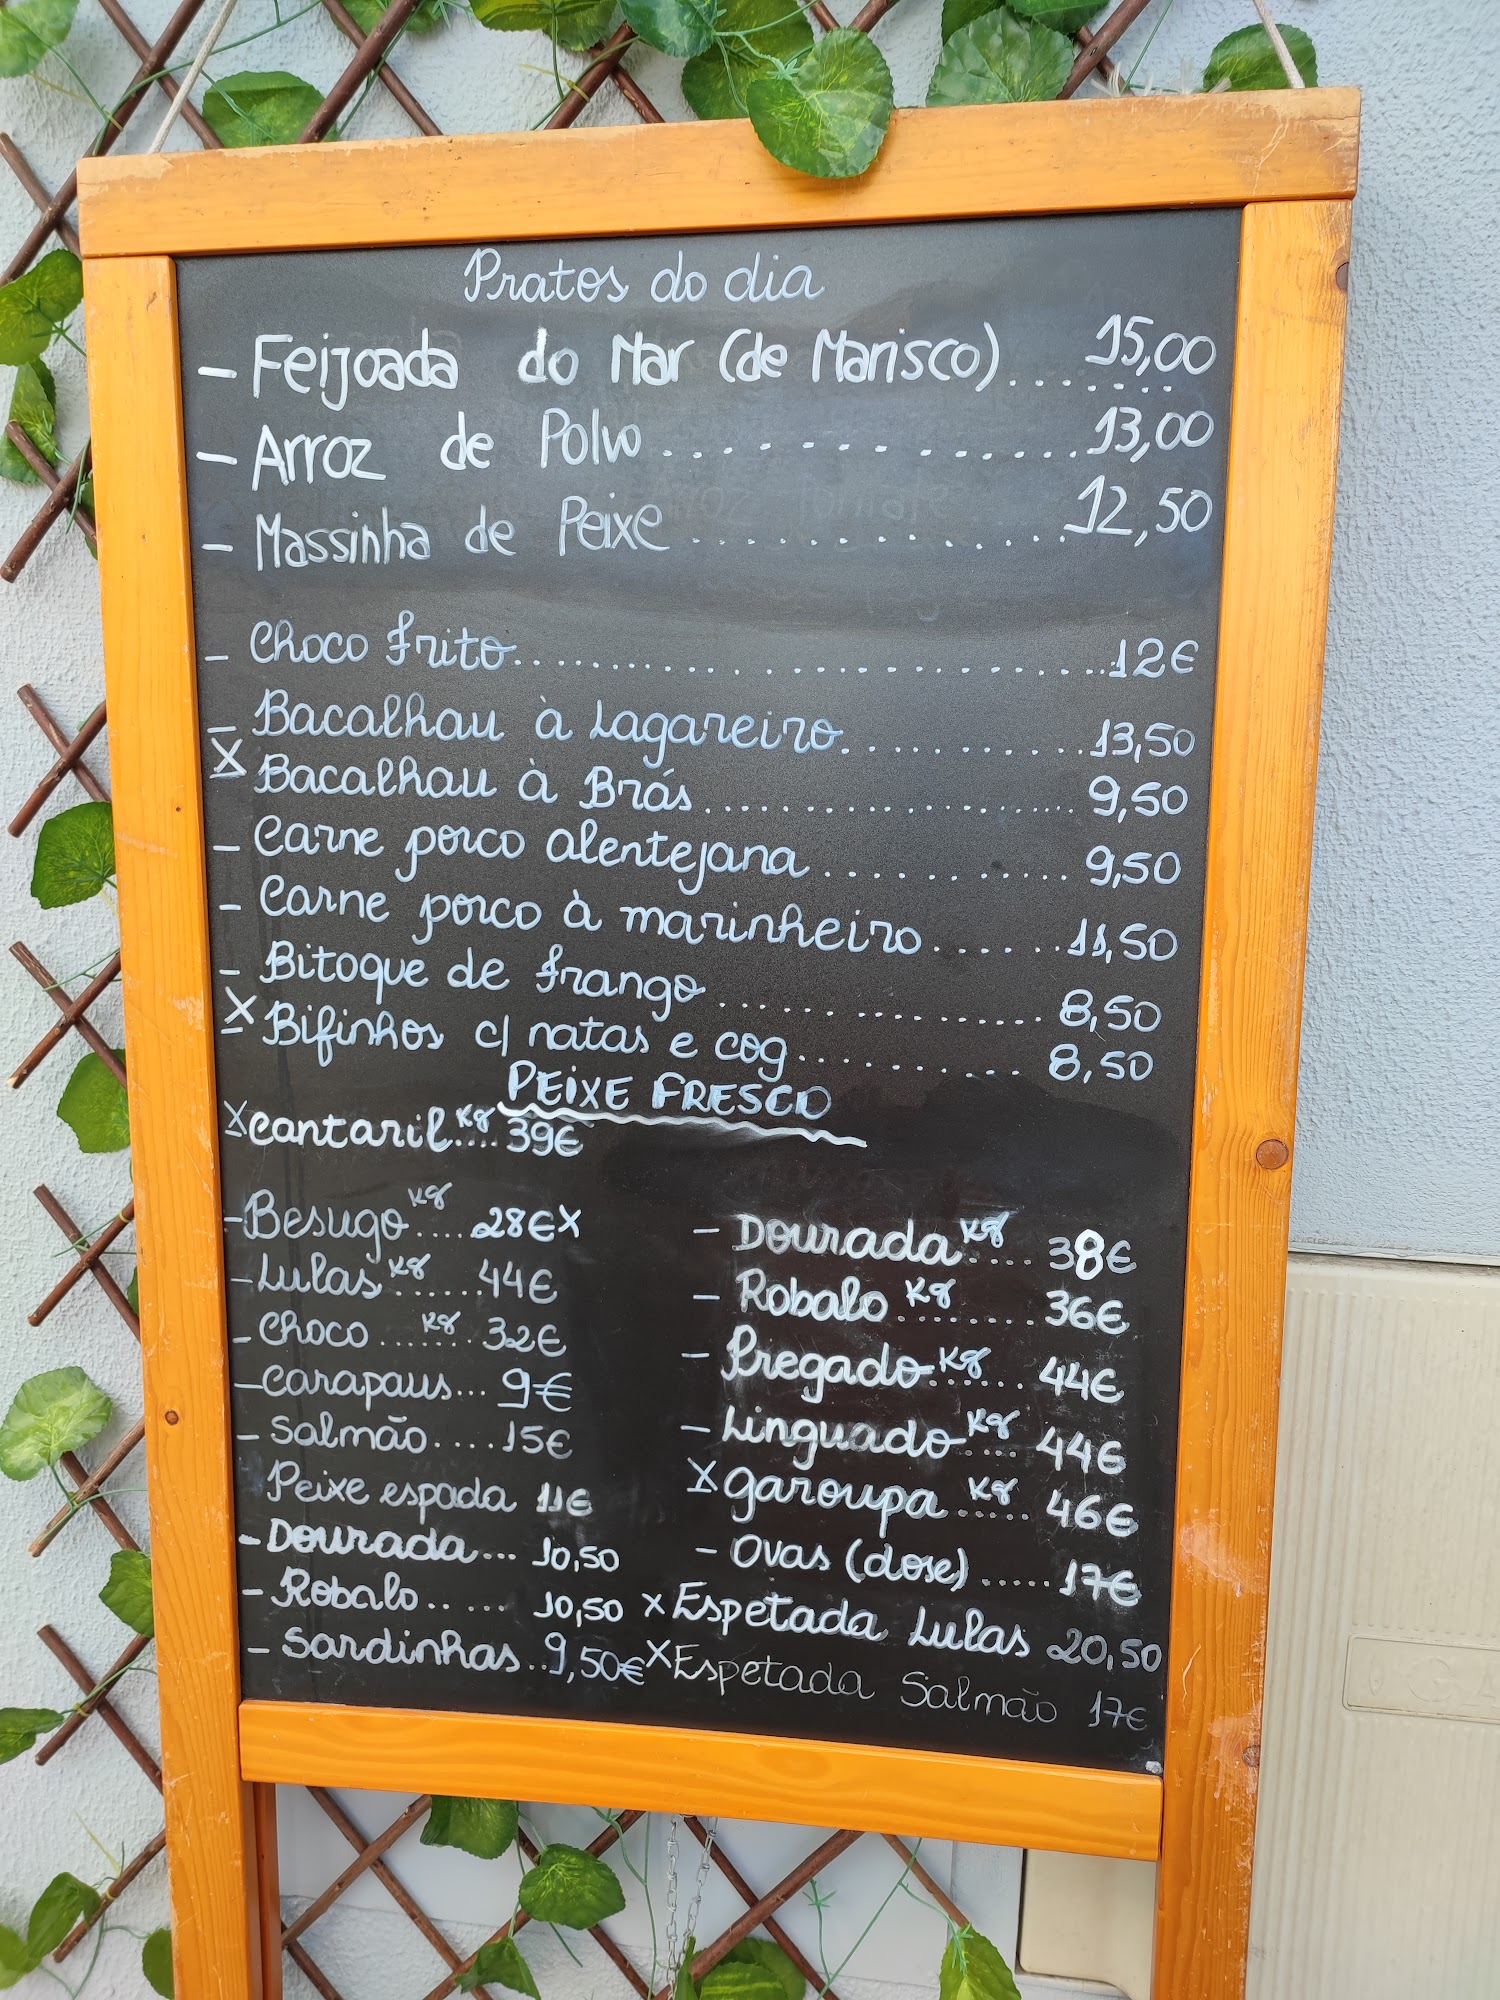 Pratos do dia
- Feijoada do Mar (de Marisco)....... 15,00
- Arroz de Polvo............. 13,00
- Massinha de Peixe............. 12,50
- Choco frito............................. 12€
- Bacalhau à Lagareiro............ 13,50
X Bacalhau à Brás.................... 9,50
- Carne porco alentejana............ 9,50
- Carne porco à marinheiro....... 11,50
- Bitoque de frango................ 8,50
X Bifinhos c/ natas e cog........... 8,50
PEIXE FRESCO
X Cantaril kg.... 39€
- Besugo kg.... 28€ X
- Lulas kg...... 44€
- Choco...... kg 32€
- Carapaus... 9€
- Salmão.... 15€
Peixe espada 11€
- Dourada... 10,50
- Robalo..... 10,50
- Sardinhas.. 9,50€
- Dourada kg.... 38€
- Robalo kg....... 36€
- Pregado kg...... 44€
- Linguado kg.... 44€
X Garoupa kg..... 46€
- Ovas (dose)..... 17€
X Espetada Lulas 20,50
X Espetada Salmão 17€